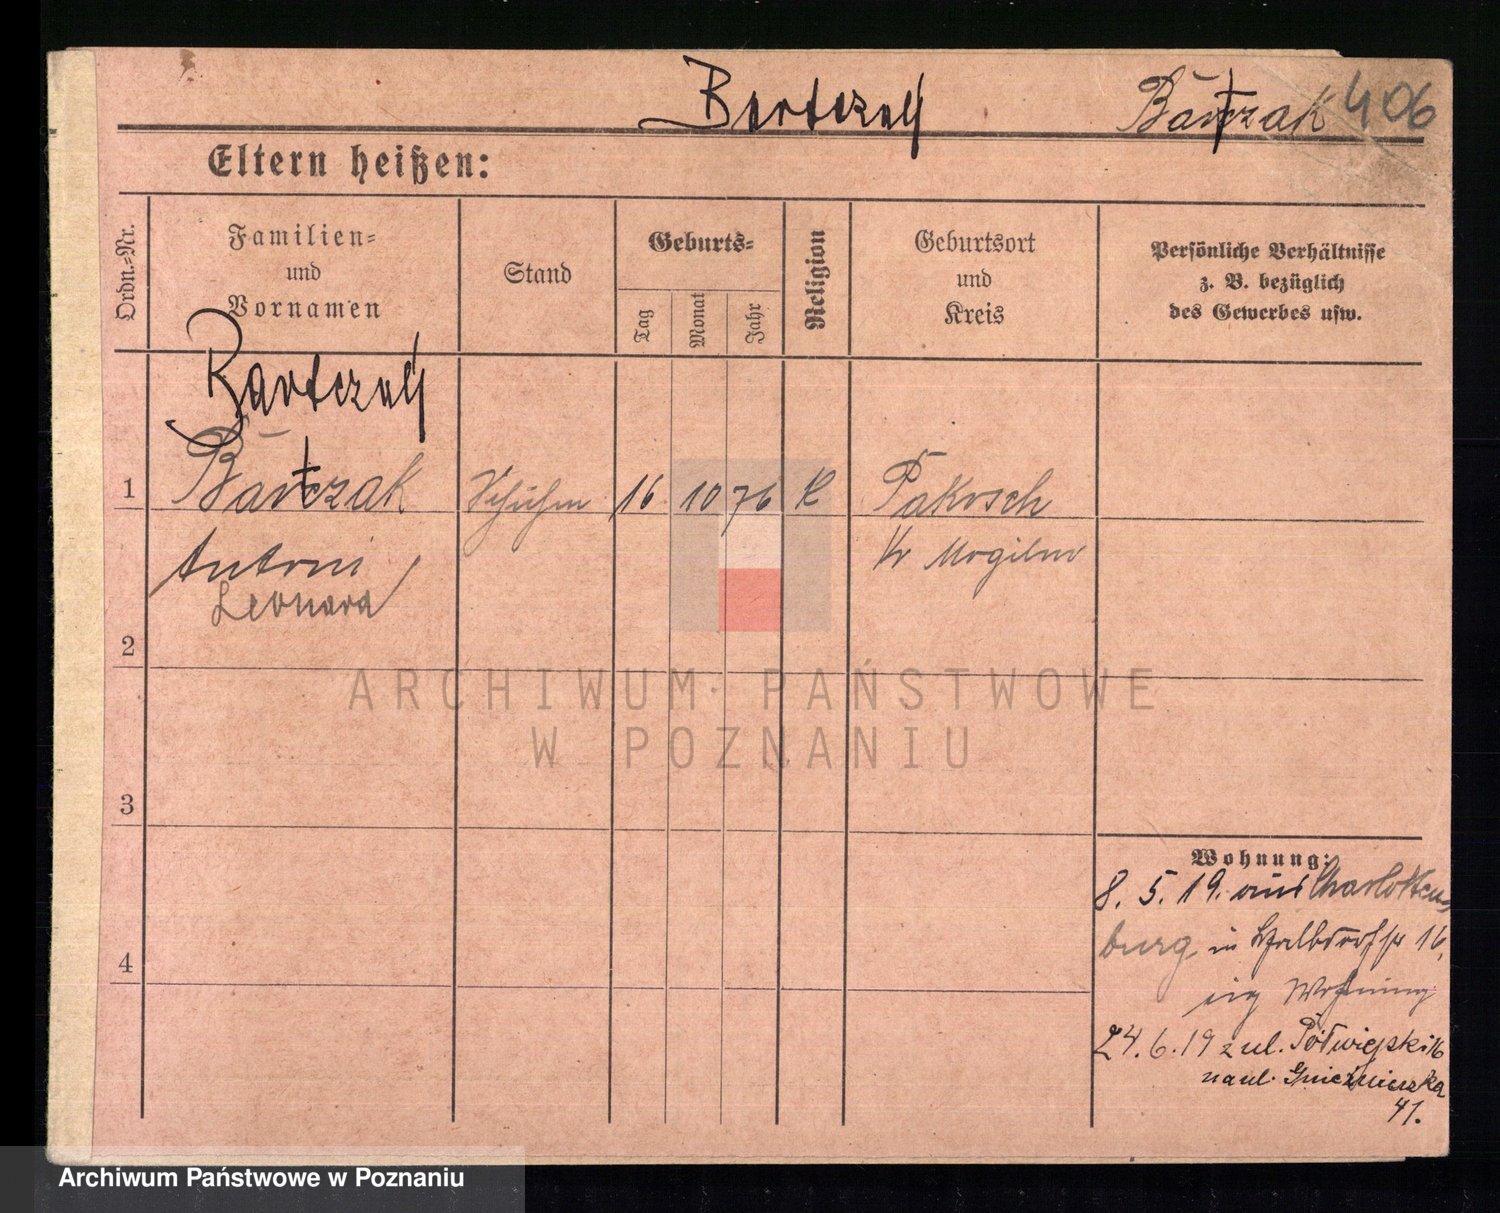 Bartczak Bartczak 406
Eltern heißen:
Ordn.-Nr.
Familien-
und
Vornamen
Stand
Geburts-
Tag
Monat
Jahr
Religion
Geburtsort
und
Kreis
Persönliche Verhältnisse
z. B. bezüglich
des Gewerbes usw.
Bartczak
1 Bartczak 16 10 76 K Pakosch
Antoni Kr Mogilno
Leonara
2
3
4
Wohnung:
8. 5. 19. aus Charlotten-
burg in 16,
Wohnung
24. 6. 19 z ul. Półwiejski 16
na ul. Gnieźnieńska
41.
ARCHIWUM PAŃSTWOWE
W POZNANIU
Archiwum Państwowe w Poznaniu